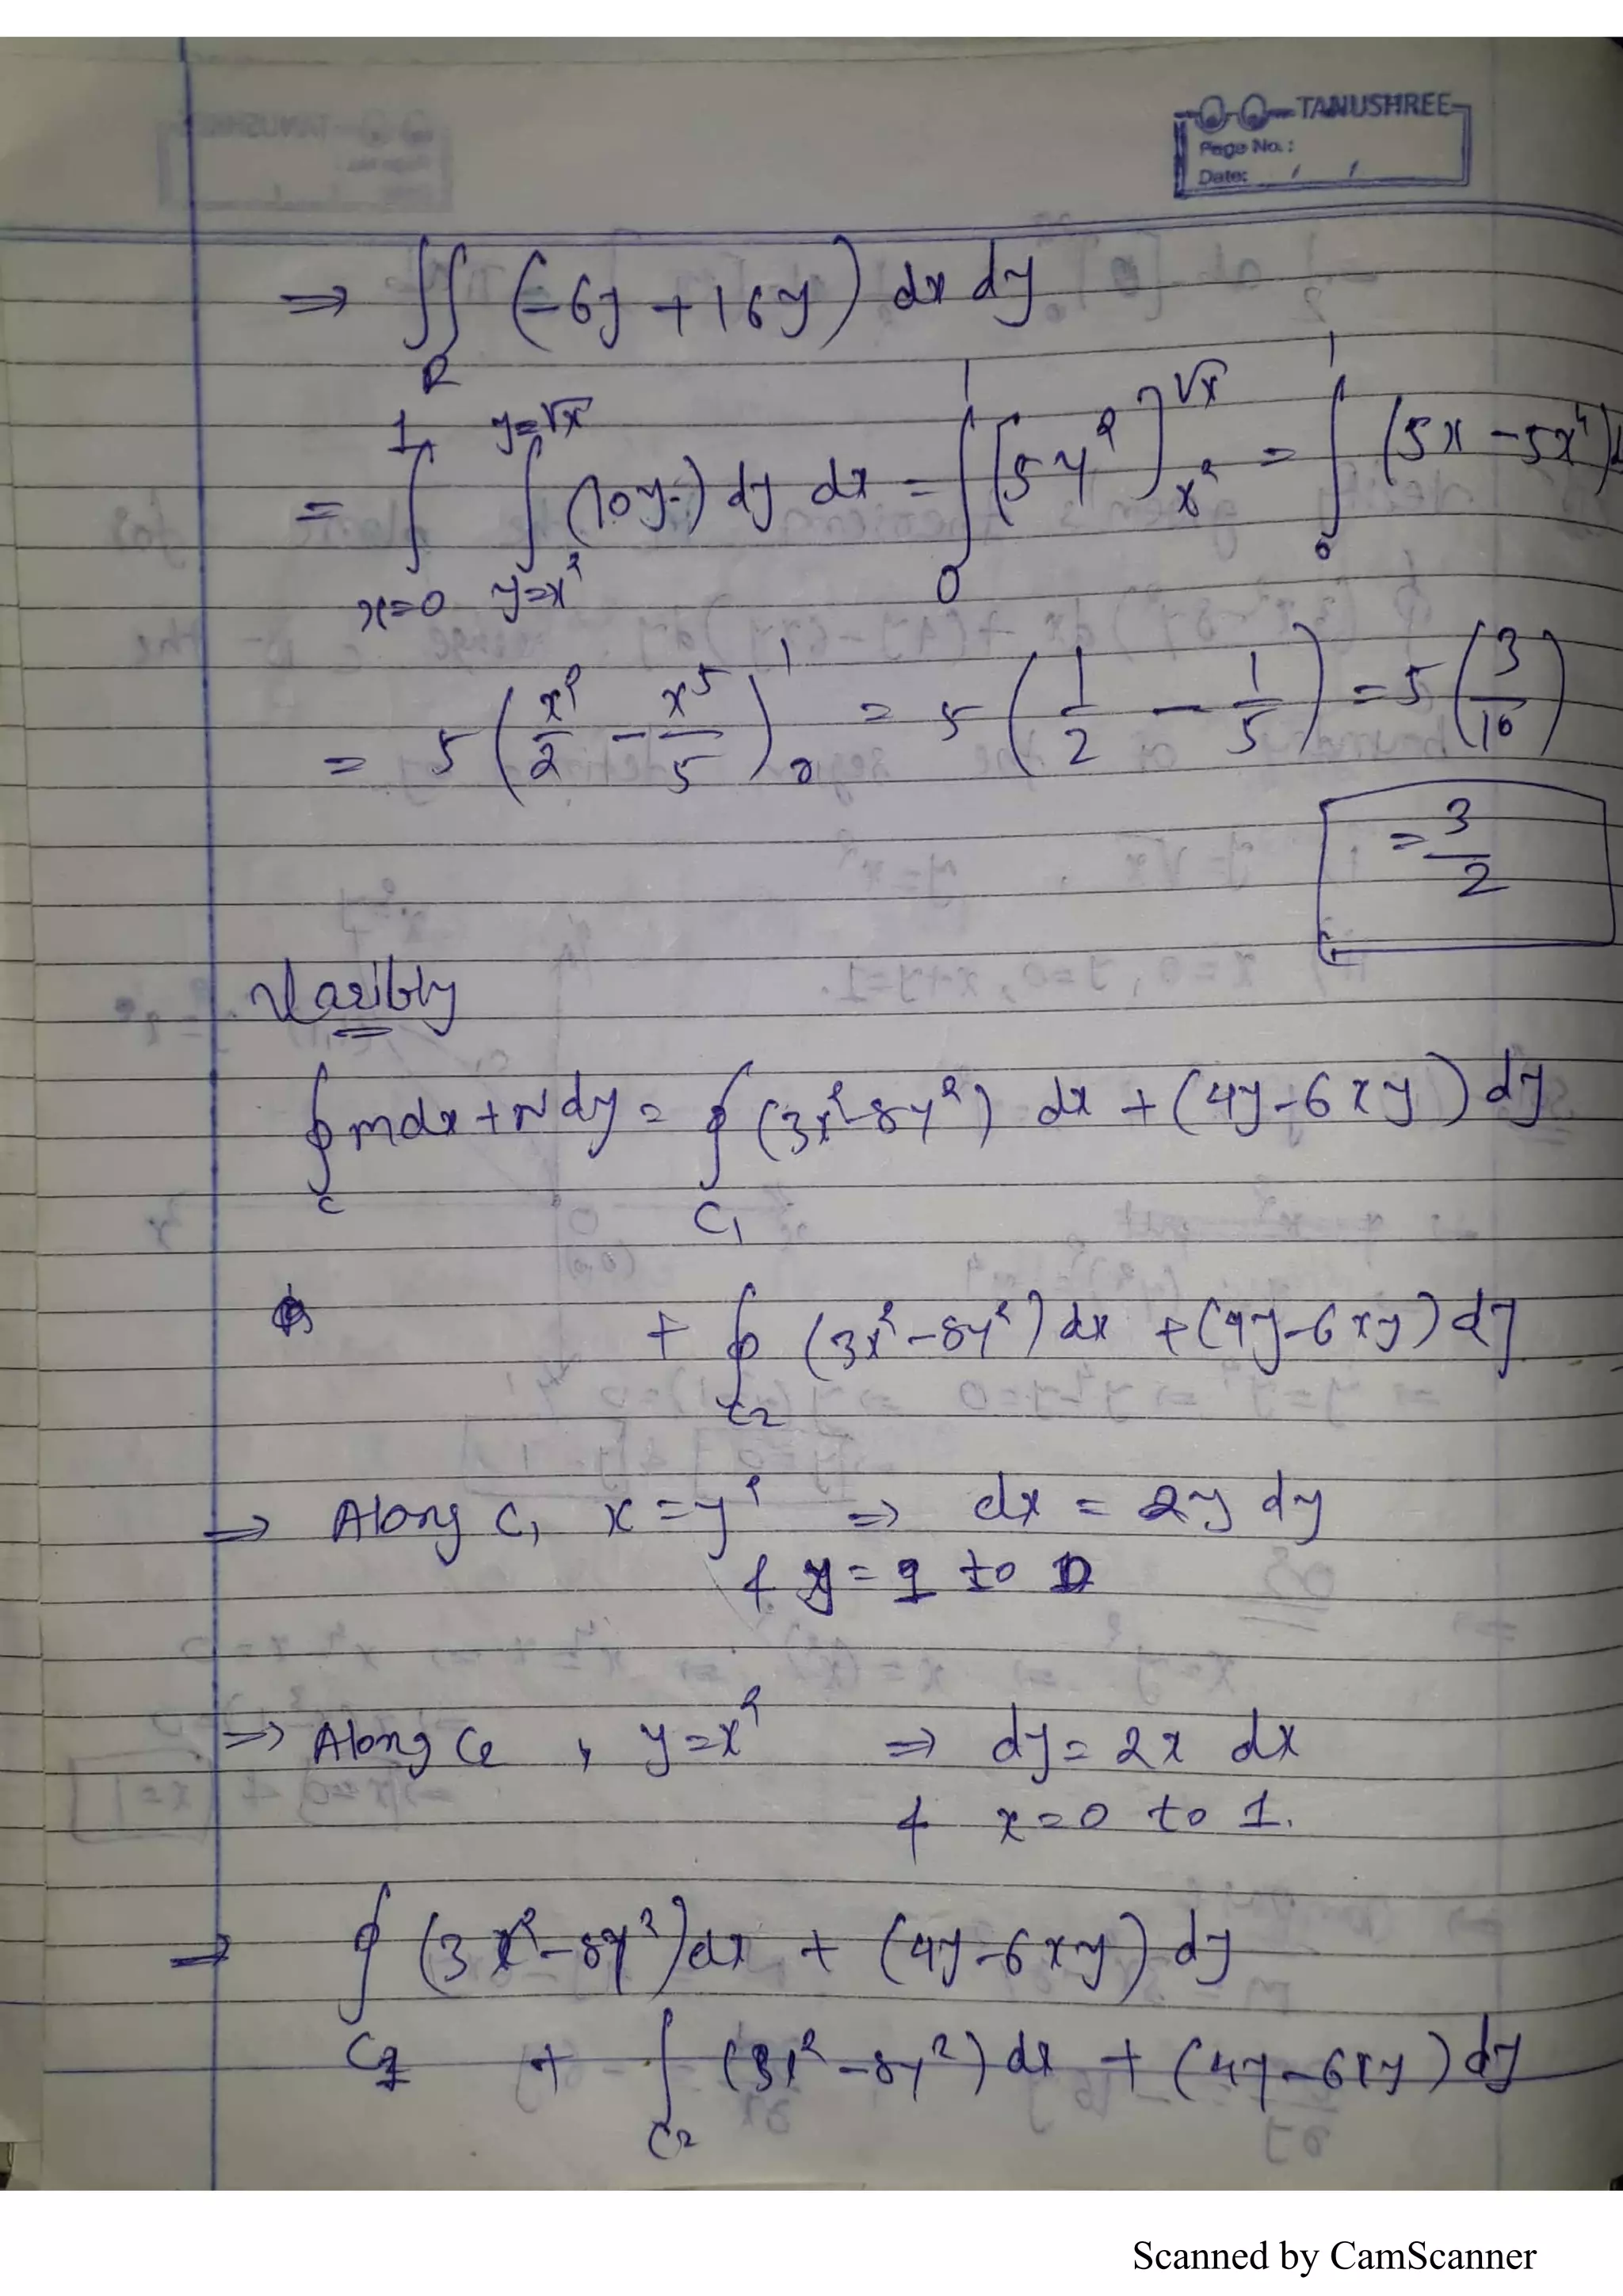 TANUSHREE
Page No.:
Date: / /
⇒ ∬_R (-6y + 16y) dx dy
= ∫_{x=0}^{1} ∫_{y=x²}^{y=√x} (10y) dy dx = ∫_0^1 [5y²]_{x²}^{√x} = ∫_0^1 (5x - 5x⁴)
= 5 (x²/2 - x⁵/5)_0^1 = 5 (1/2 - 1/5) = 5 (3/10)
= 3/2
Varibly
∮_C mdx + Ndy = ∮_{C1} (3x² - 8y²) dx + (4y - 6xy) dy
+ ∮_{C2} (3x² - 8y²) dx + (4y - 6xy) dy
⇒ Along C1 x = y² ⇒ dx = 2y dy
& y = 1 to 0
⇒ Along C2, y = x² ⇒ dy = 2x dx
& x = 0 to 1.
⇒ ∮_{C1} (3x² - 8y²) dx + (4y - 6xy) dy
+ ∫_{C2} (3x² - 8y²) dx + (4y - 6xy) dy
Scanned by CamScanner